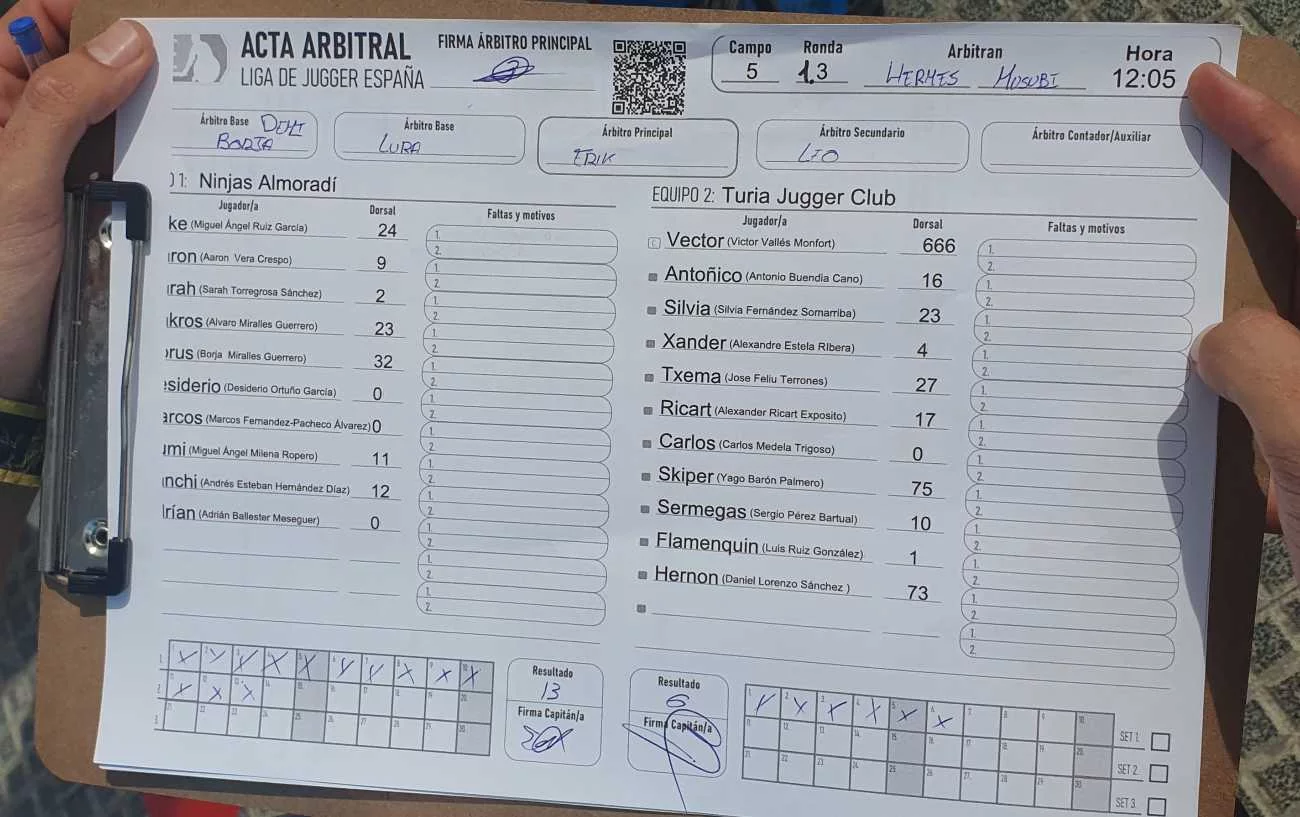 ACTA ARBITRAL
LIGA DE JUGGER ESPAÑA
FIRMA ÁRBITRO PRINCIPAL
Campo Ronda Arbitran Hora
5 1.3 HERMES MUSUBI 12:05
Árbitro Base DEMI
BORJA
Árbitro Base
LURA
Árbitro Principal
ERIK
Árbitro Secundario
LEO
Árbitro Contador/Auxiliar
O 1: Ninjas Almoradí
Jugador/a Dorsal Faltas y motivos
ke (Miguel Ángel Ruiz García) 24 1. 2.
ron (Aaron Vera Crespo) 9 1. 2.
rah (Sarah Torregrosa Sánchez) 2 1. 2.
kros (Alvaro Miralles Guerrero) 23 1. 2.
rus (Borja Miralles Guerrero) 32 1. 2.
siderio (Desiderio Ortuño García) 0 1. 2.
arcos (Marcos Fernandez-Pacheco Álvarez) 0 1. 2.
mi (Miguel Ángel Milena Ropero) 11 1. 2.
nchi (Andrés Esteban Hernández Díaz) 12 1. 2.
rían (Adrián Ballester Meseguer) 0 1. 2.
1. 2.
1. 2.
EQUIPO 2: Turia Jugger Club
Jugador/a Dorsal Faltas y motivos
C Vector (Victor Vallés Monfort) 666 1. 2.
Antoñico (Antonio Buendia Cano) 16 1. 2.
Silvia (Silvia Fernández Somarriba) 23 1. 2.
Xander (Alexandre Estela RIbera) 4 1. 2.
Txema (Jose Feliu Terrones) 27 1. 2.
Ricart (Alexander Ricart Exposito) 17 1. 2.
Carlos (Carlos Medela Trigoso) 0 1. 2.
Skiper (Yago Barón Palmero) 75 1. 2.
Sermegas (Sergio Pérez Bartual) 10 1. 2.
Flamenquin (Luis Ruiz González) 1 1. 2.
Hernon (Daniel Lorenzo Sánchez ) 73 1. 2.
1. 2.
1. X 2. X 3. X 4. X 5. X 6. X 7. X 8. X 9. X 10. X
2. 11. X 12. X 13. X 14. 15. 16. 17. 18. 19. 20.
3. 21. 22. 23. 24. 25. 26. 27. 28. 29. 30.
Resultado
13
Firma Capitán/a
Resultado
6
Firma Capitán/a
1. X 2. X 3. X 4. X 5. X 6. X 7. 8. 9. 10. SET 1.
11. 12. 13. 14. 15. 16. 17. 18. 19. 20. SET 2.
21. 22. 23. 24. 25. 26. 27. 28. 29. 30. SET 3.